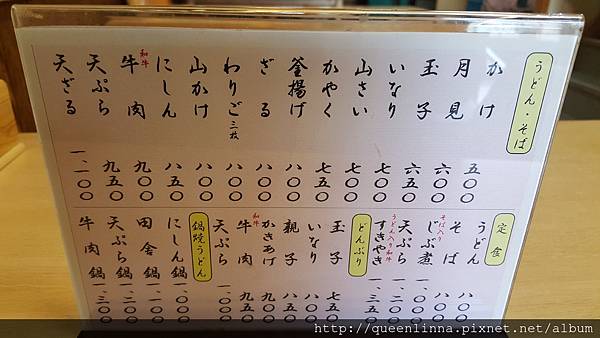 うどん・そば
かけ 五〇〇
月見 六〇〇
玉子 六五〇
いなり 七〇〇
山さい 七〇〇
かやく 七五〇
釜揚げ 八〇〇
ざる 八〇〇
わりご三枚 八〇〇
山かけ 八〇〇
にしん 八五〇
和牛
牛肉 九〇〇
天ぷら 九五〇
天ざる 一、一〇〇
定食
うどん 八〇〇
そば 八〇〇
そば入り
じぶ煮 一、〇〇〇
天ぷら 一、二〇〇
うどん入り和牛
すきやき 一、三五〇
どんぶり
玉子 七五〇
いなり 八〇〇
親子 八五〇
かきあげ 九〇〇
和牛
牛肉 九五〇
天ぷら 一、〇〇〇
鍋焼うどん
にしん鍋 一、〇〇〇
田舎鍋 一、一〇〇
天ぷら鍋 一、二〇〇
牛肉鍋 一、三〇〇
http://queenlinna.pixnet.net/album